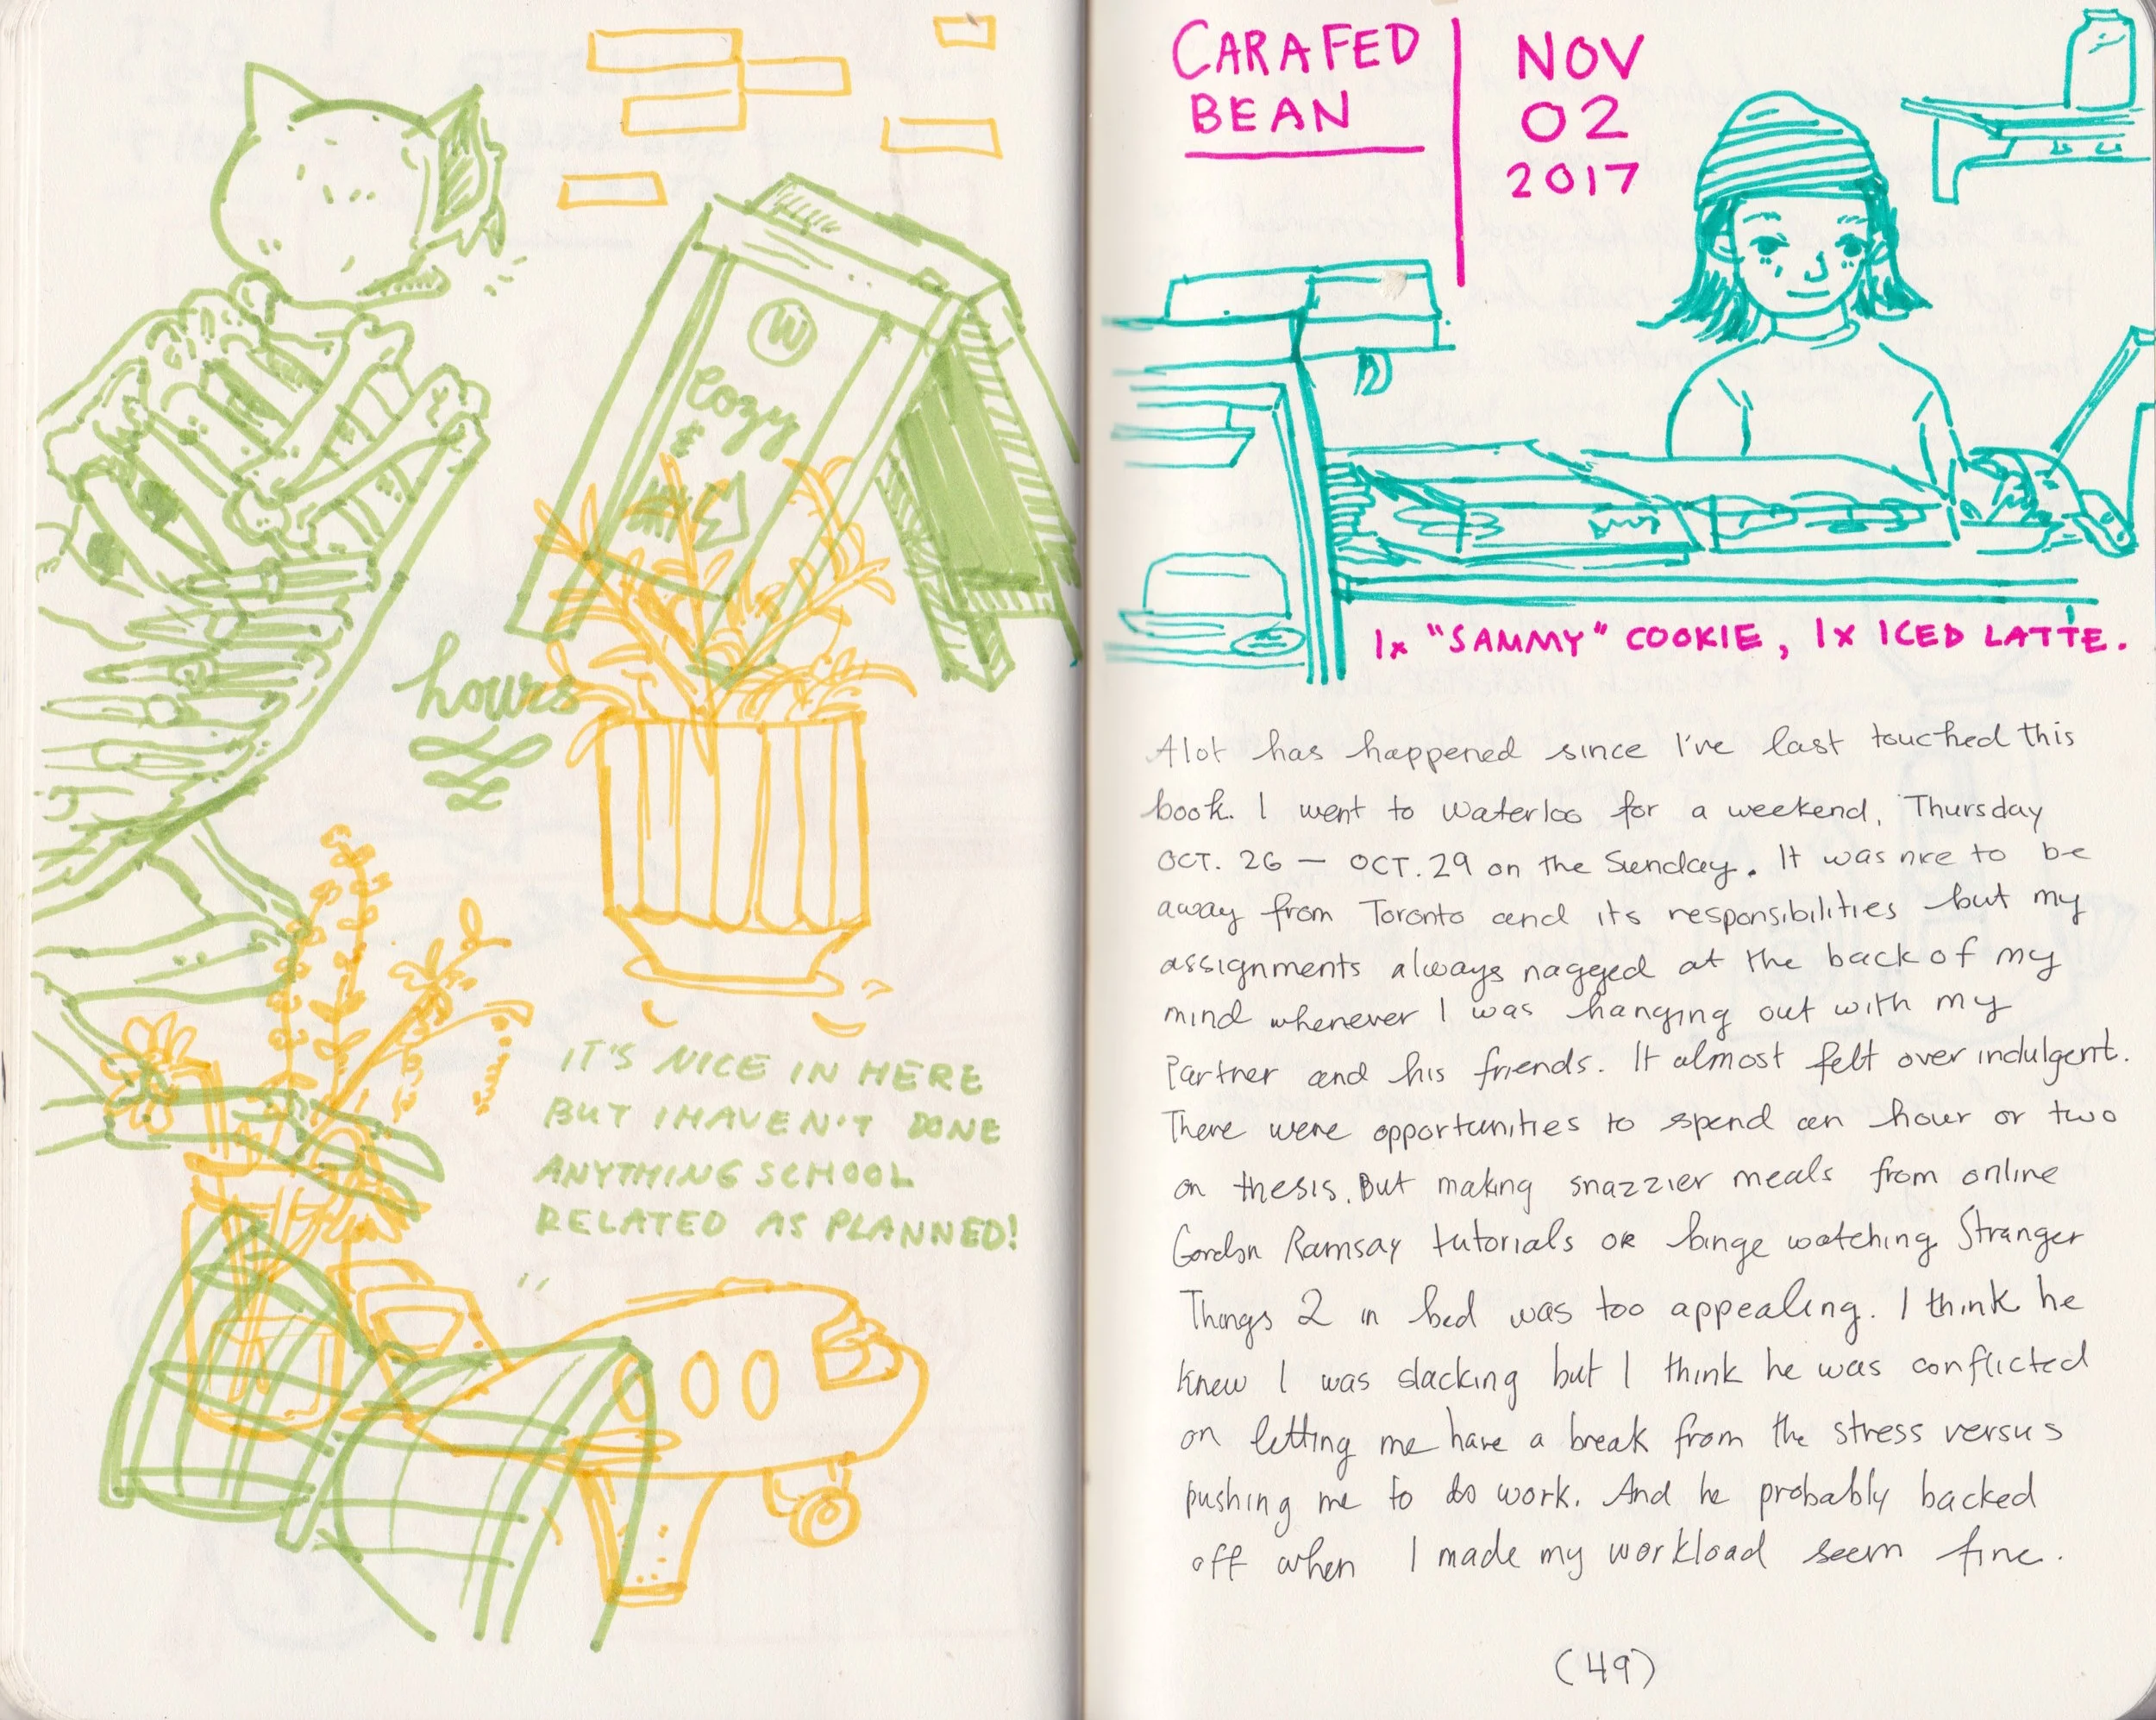 W
Cozy
&
hours
IT'S NICE IN HERE
BUT I HAVEN'T DONE
ANYTHING SCHOOL
RELATED AS PLANNED!
CARAFED
BEAN
NOV
02
2017
1x "SAMMY" COOKIE, 1x ICED LATTE.
Alot has happened since I've last touched this
book. I went to Waterloo for a weekend, Thursday
OCT. 26 — OCT. 29 on the Sunday. It was nice to be
away from Toronto and its responsibilities but my
assignments always nagged at the back of my
mind whenever I was hanging out with my
Partner and his friends. It almost felt over indulgent.
There were opportunities to spend an hour or two
on thesis. But making snazzier meals from online
Gordon Ramsay tutorials OR binge watching Stranger
Things 2 in bed was too appealing. I think he
knew I was slacking but I think he was conflicted
on letting me have a break from the stress versus
pushing me to do work. And he probably backed
off when I made my workload seem fine.
(49)